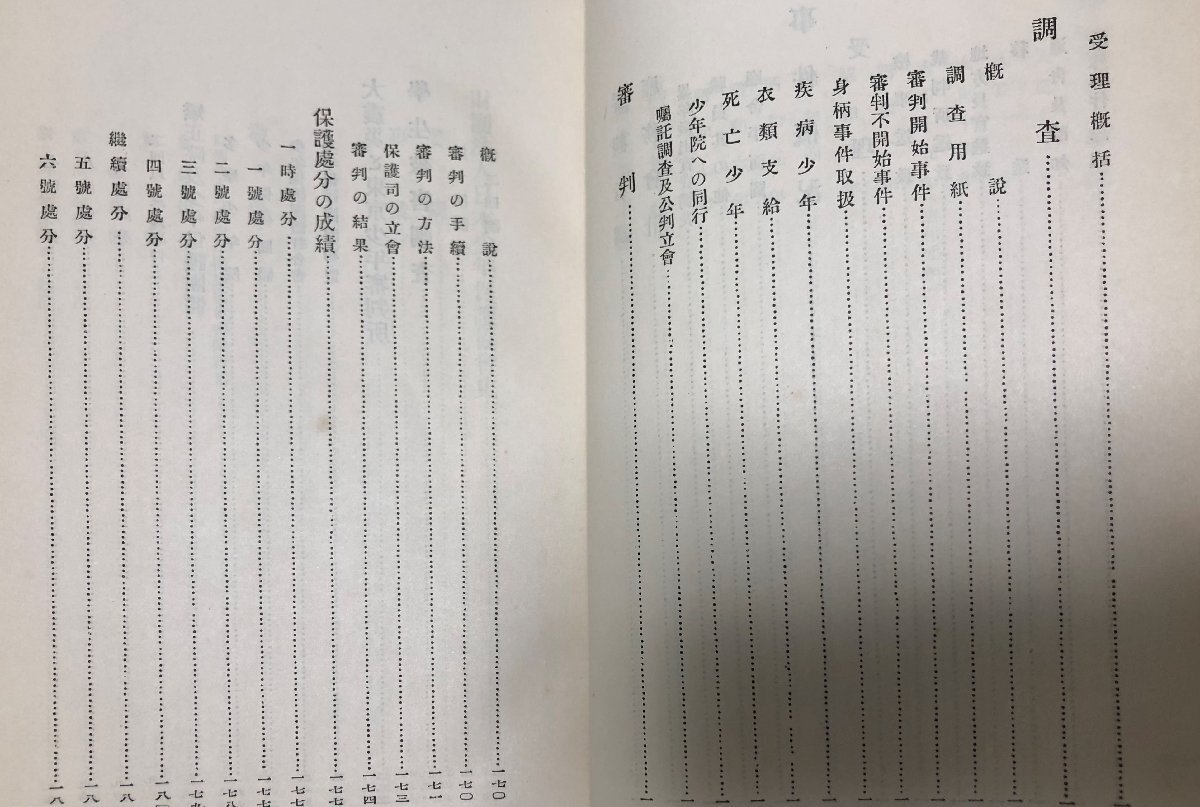 受理概括……一
調査……一
概說……一
調査用紙……一
審判開始事件……一
審判不開始事件……一
身柄事件取扱……一
疾病少年……一
衣類支給……一
死亡少年……一
少年院への同行……一
囑託調査及公判立會……一
審判……一
概說……一七〇
審判の手續……一七〇
審判の方法……一七一
保護司の立會……一七三
審判の結果……一七四
保護處分の成績……一七七
一時處分……一七七
一號處分……一七七
二號處分……一七八
三號處分……一七九
四號處分……一八
繼續處分……一八
五號處分……一八
六號處分……一八